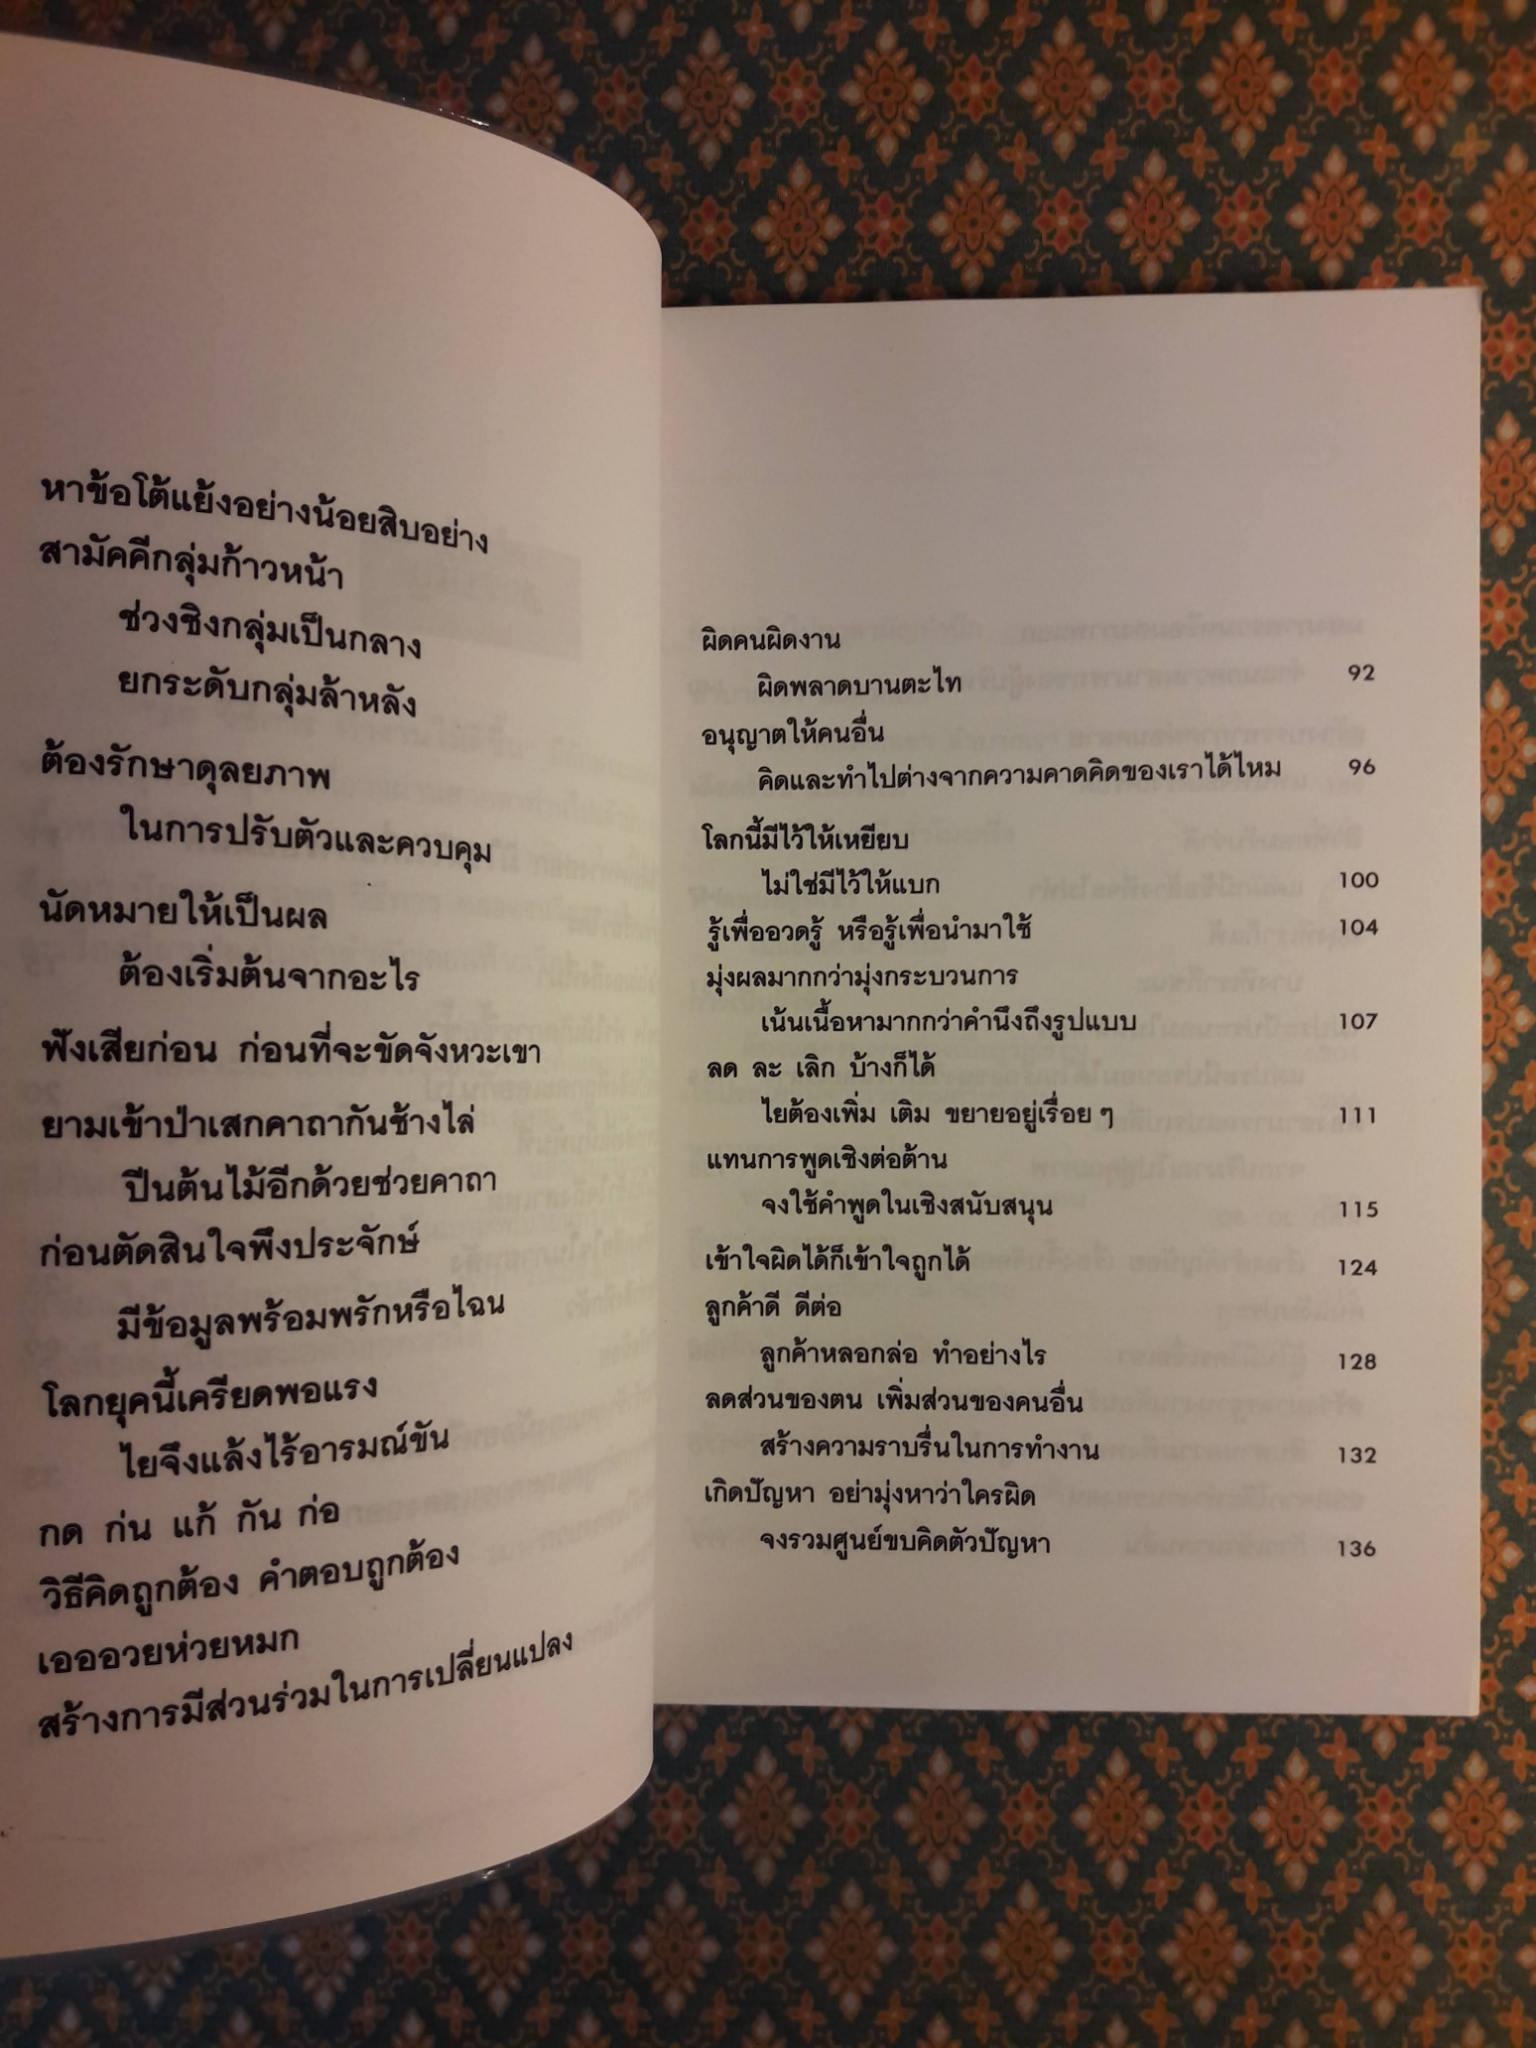 หาข้อโต้แย้งอย่างน้อยสิบอย่าง
สามัคคีกลุ่มก้าวหน้า
ช่วงชิงกลุ่มเป็นกลาง
ยกระดับกลุ่มล้าหลัง
ต้องรักษาดุลยภาพ
ในการปรับตัวและควบคุม
นัดหมายให้เป็นผล
ต้องเริ่มต้นจากอะไร
ฟังเสียก่อน ก่อนที่จะขัดจังหวะเขา
ยามเข้าป่าเสกคาถากันช้างไล่
ปีนต้นไม้อีกด้วยช่วยคาถา
ก่อนตัดสินใจพึงประจักษ์
มีข้อมูลพร้อมพรักหรือไฉน
โลกยุคนี้เครียดพอแรง
ไยจึงแล้งไร้อารมณ์ขัน
กด ก่น แก้ กัน ก่อ
วิธีคิดถูกต้อง คำตอบถูกต้อง
เอออวยห่วยหมก
สร้างการมีส่วนร่วมในการเปลี่ยนแปลง
ผิดคนผิดงาน
ผิดพลาดบานตะไท 92
อนุญาตให้คนอื่น
คิดและทำไปต่างจากความคาดคิดของเราได้ไหม 96
โลกนี้มีไว้ให้เหยียบ
ไม่ใช่มีไว้ให้แบก 100
รู้เพื่ออวดรู้ หรือรู้เพื่อนำมาใช้ 104
มุ่งผลมากกว่ามุ่งกระบวนการ
เน้นเนื้อหามากกว่าคำนึงถึงรูปแบบ 107
ลด ละ เลิก บ้างก็ได้
ไยต้องเพิ่ม เติม ขยายอยู่เรื่อย ๆ 111
แทนการพูดเชิงต่อต้าน
จงใช้คำพูดในเชิงสนับสนุน 115
เข้าใจผิดได้ก็เข้าใจถูกได้ 124
ลูกค้าดี ดีต่อ
ลูกค้าหลอกล่อ ทำอย่างไร 128
ลดส่วนของตน เพิ่มส่วนของคนอื่น
สร้างความราบรื่นในการทำงาน 132
เกิดปัญหา อย่ามุ่งหาว่าใครผิด
จงรวมศูนย์ขบคิดตัวปัญหา 136